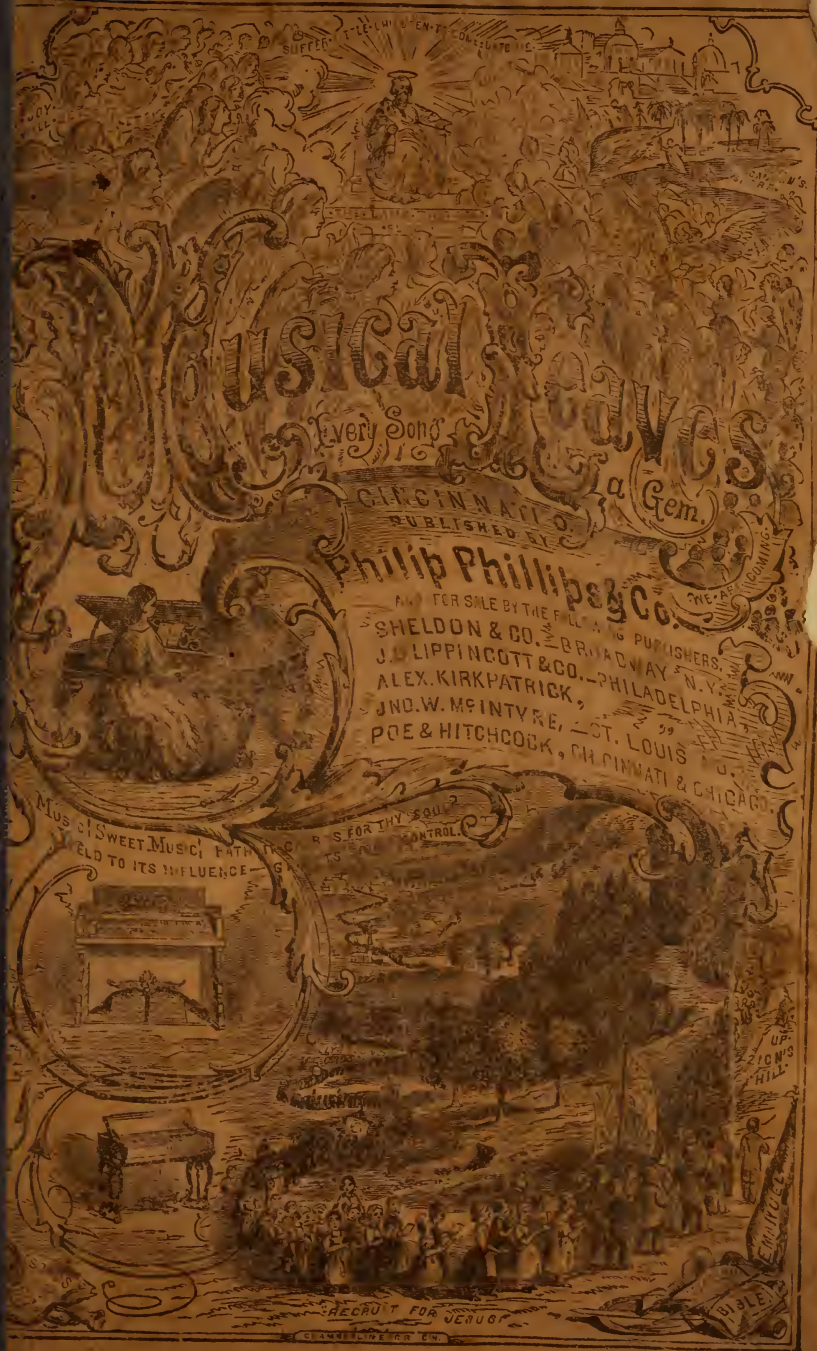 SUFFER
Musical Leaves
Every Song
a Gem.
CINCINNATI O.
PUBLISHED BY
Philip Phillips & Co.
WE ARE COMING
AND FOR SALE BY THE FOLLOWING PUBLISHERS.
SHELDON & CO. BROADWAY N.Y.
J. LIPPINCOTT & CO. PHILADELPHIA,
ALEX. KIRKPATRICK, " "
JNO. W. McINTYRE, ST. LOUIS
POE & HITCHCOCK, CINCINNATI & CHICAGO.
MUSIC! SWEET MUSIC! FOR THY SOUL
TO ITS INFLUENCE CONTROL.
UP
ZION'S
HILL
EMANUEL
BIBLE
RECRUIT FOR JESUS